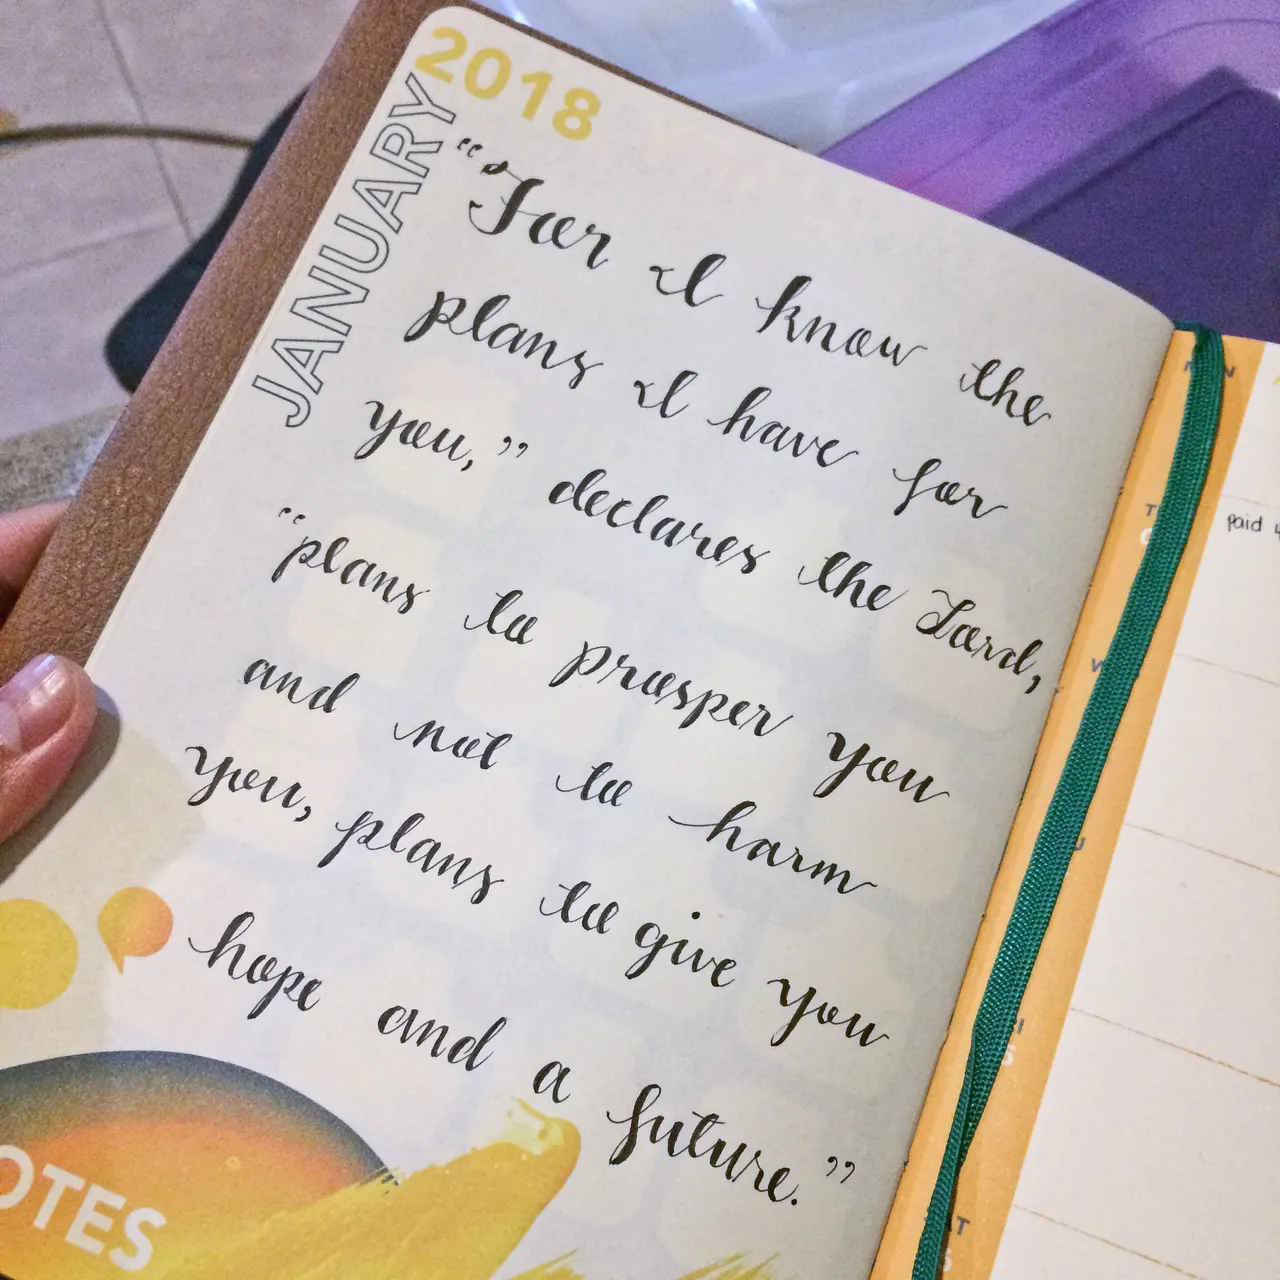 2018
JANUARY
"For I know the
plans I have for
you," declares the Lord,
"plans to prosper you
and not to harm
you, plans to give you
hope and a future."
OTES
paid